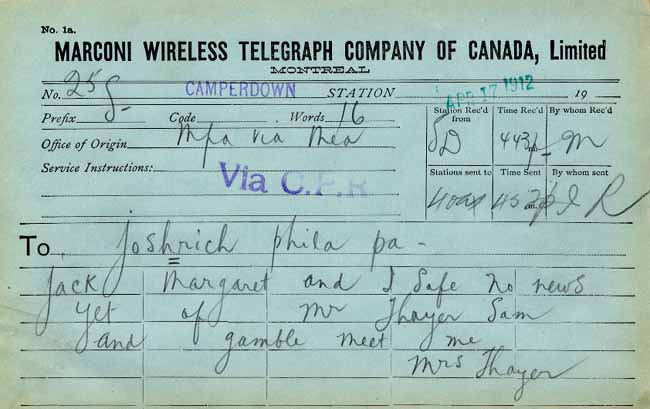 No. 1a.
MARCONI WIRELESS TELEGRAPH COMPANY OF CANADA, Limited
MONTREAL
No. 25 CAMPERDOWN STATION APR 17 1912 19
Prefix Code Words 16
Office of Origin Mpa via Mea
Service Instructions:
Via C.P.R
Station Rec'd from Time Rec'd By whom Rec'd
SD 443p M
Stations sent to Time Sent By whom sent
R
To Joshrich phila pa -
Jack Margaret and I safe no news
yet of Mr Thayer Sam
and gamble meet me
Mrs Thayer